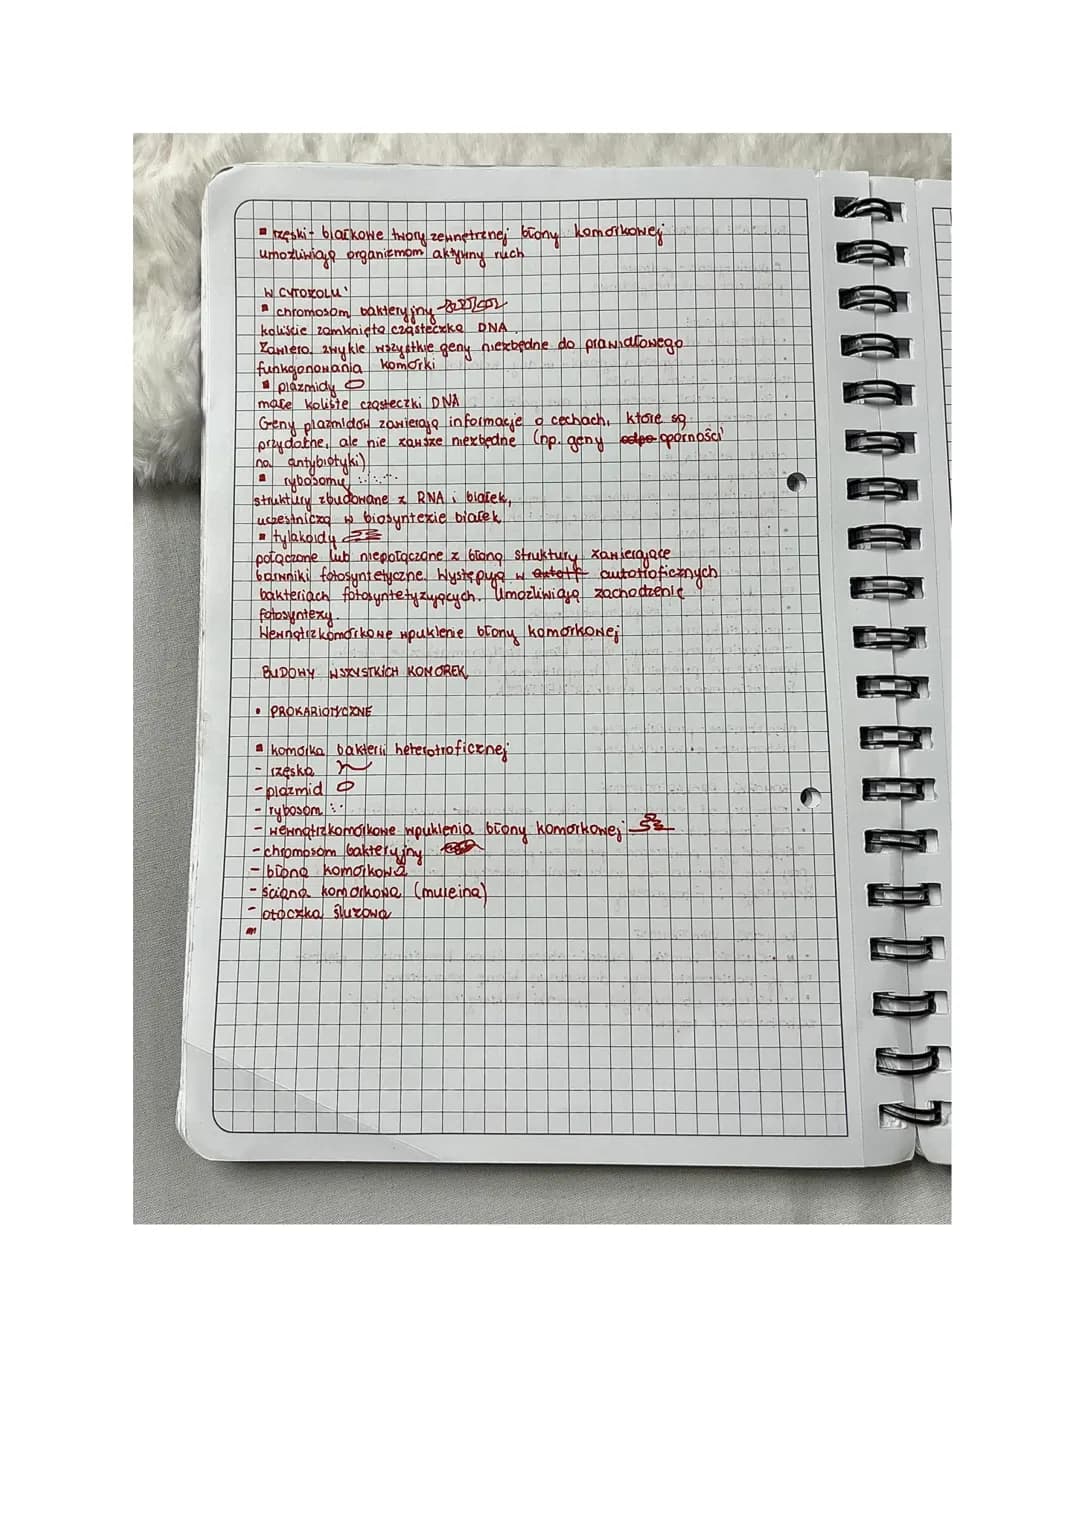 ▪ rzęski- białkowe twory zewnętrznej błony komórkowej
umożliwiają organizmom aktywny ruch
W CYTOZOLU:
▪ chromosom bakteryjny
koliście zamknięta cząsteczka DNA.
Zawiera zwykle wszystkie geny niezbędne do prawidłowego
funkcjonowania komórki
▪ plazmidy
małe koliste cząsteczki DNA
Geny plazmidów zawierają informacje o cechach, które są
przydatne, ale nie zawsze niezbędne (np. geny oporności
na antybiotyki)
▪ rybosomy
struktury zbudowane z RNA i białek,
uczestniczą w biosyntezie białek
▪ tylakoidy
połączone lub niepołączone z błoną struktury zawierające
barwniki fotosyntetyczne. Występują w autotroficznych
bakteriach fotosyntetyzujących. Umożliwiają zachodzenie
fotosyntezy.
Wewnątrzkomórkowe wpuklenie błony komórkowej
BUDOWY WSZYSTKICH KOMÓREK
• PROKARIOTYCZNE
▪ komórka bakterii heterotroficznej
- rzęska
- plazmid
- rybosom
- wewnątrzkomórkowe wpuklenia błony komórkowej
- chromosom bakteryjny
- błona komórkowa
- ściana komórkowa (mureina)
- otoczka śluzowa